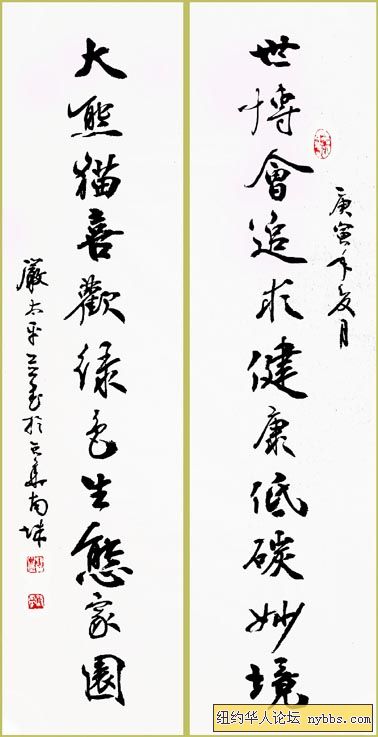 庚寅年夏月
世博會追求健康低碳妙境
大熊猫喜歡绿色生態家園
嚴太平
纽约华人论坛
nybbs.com